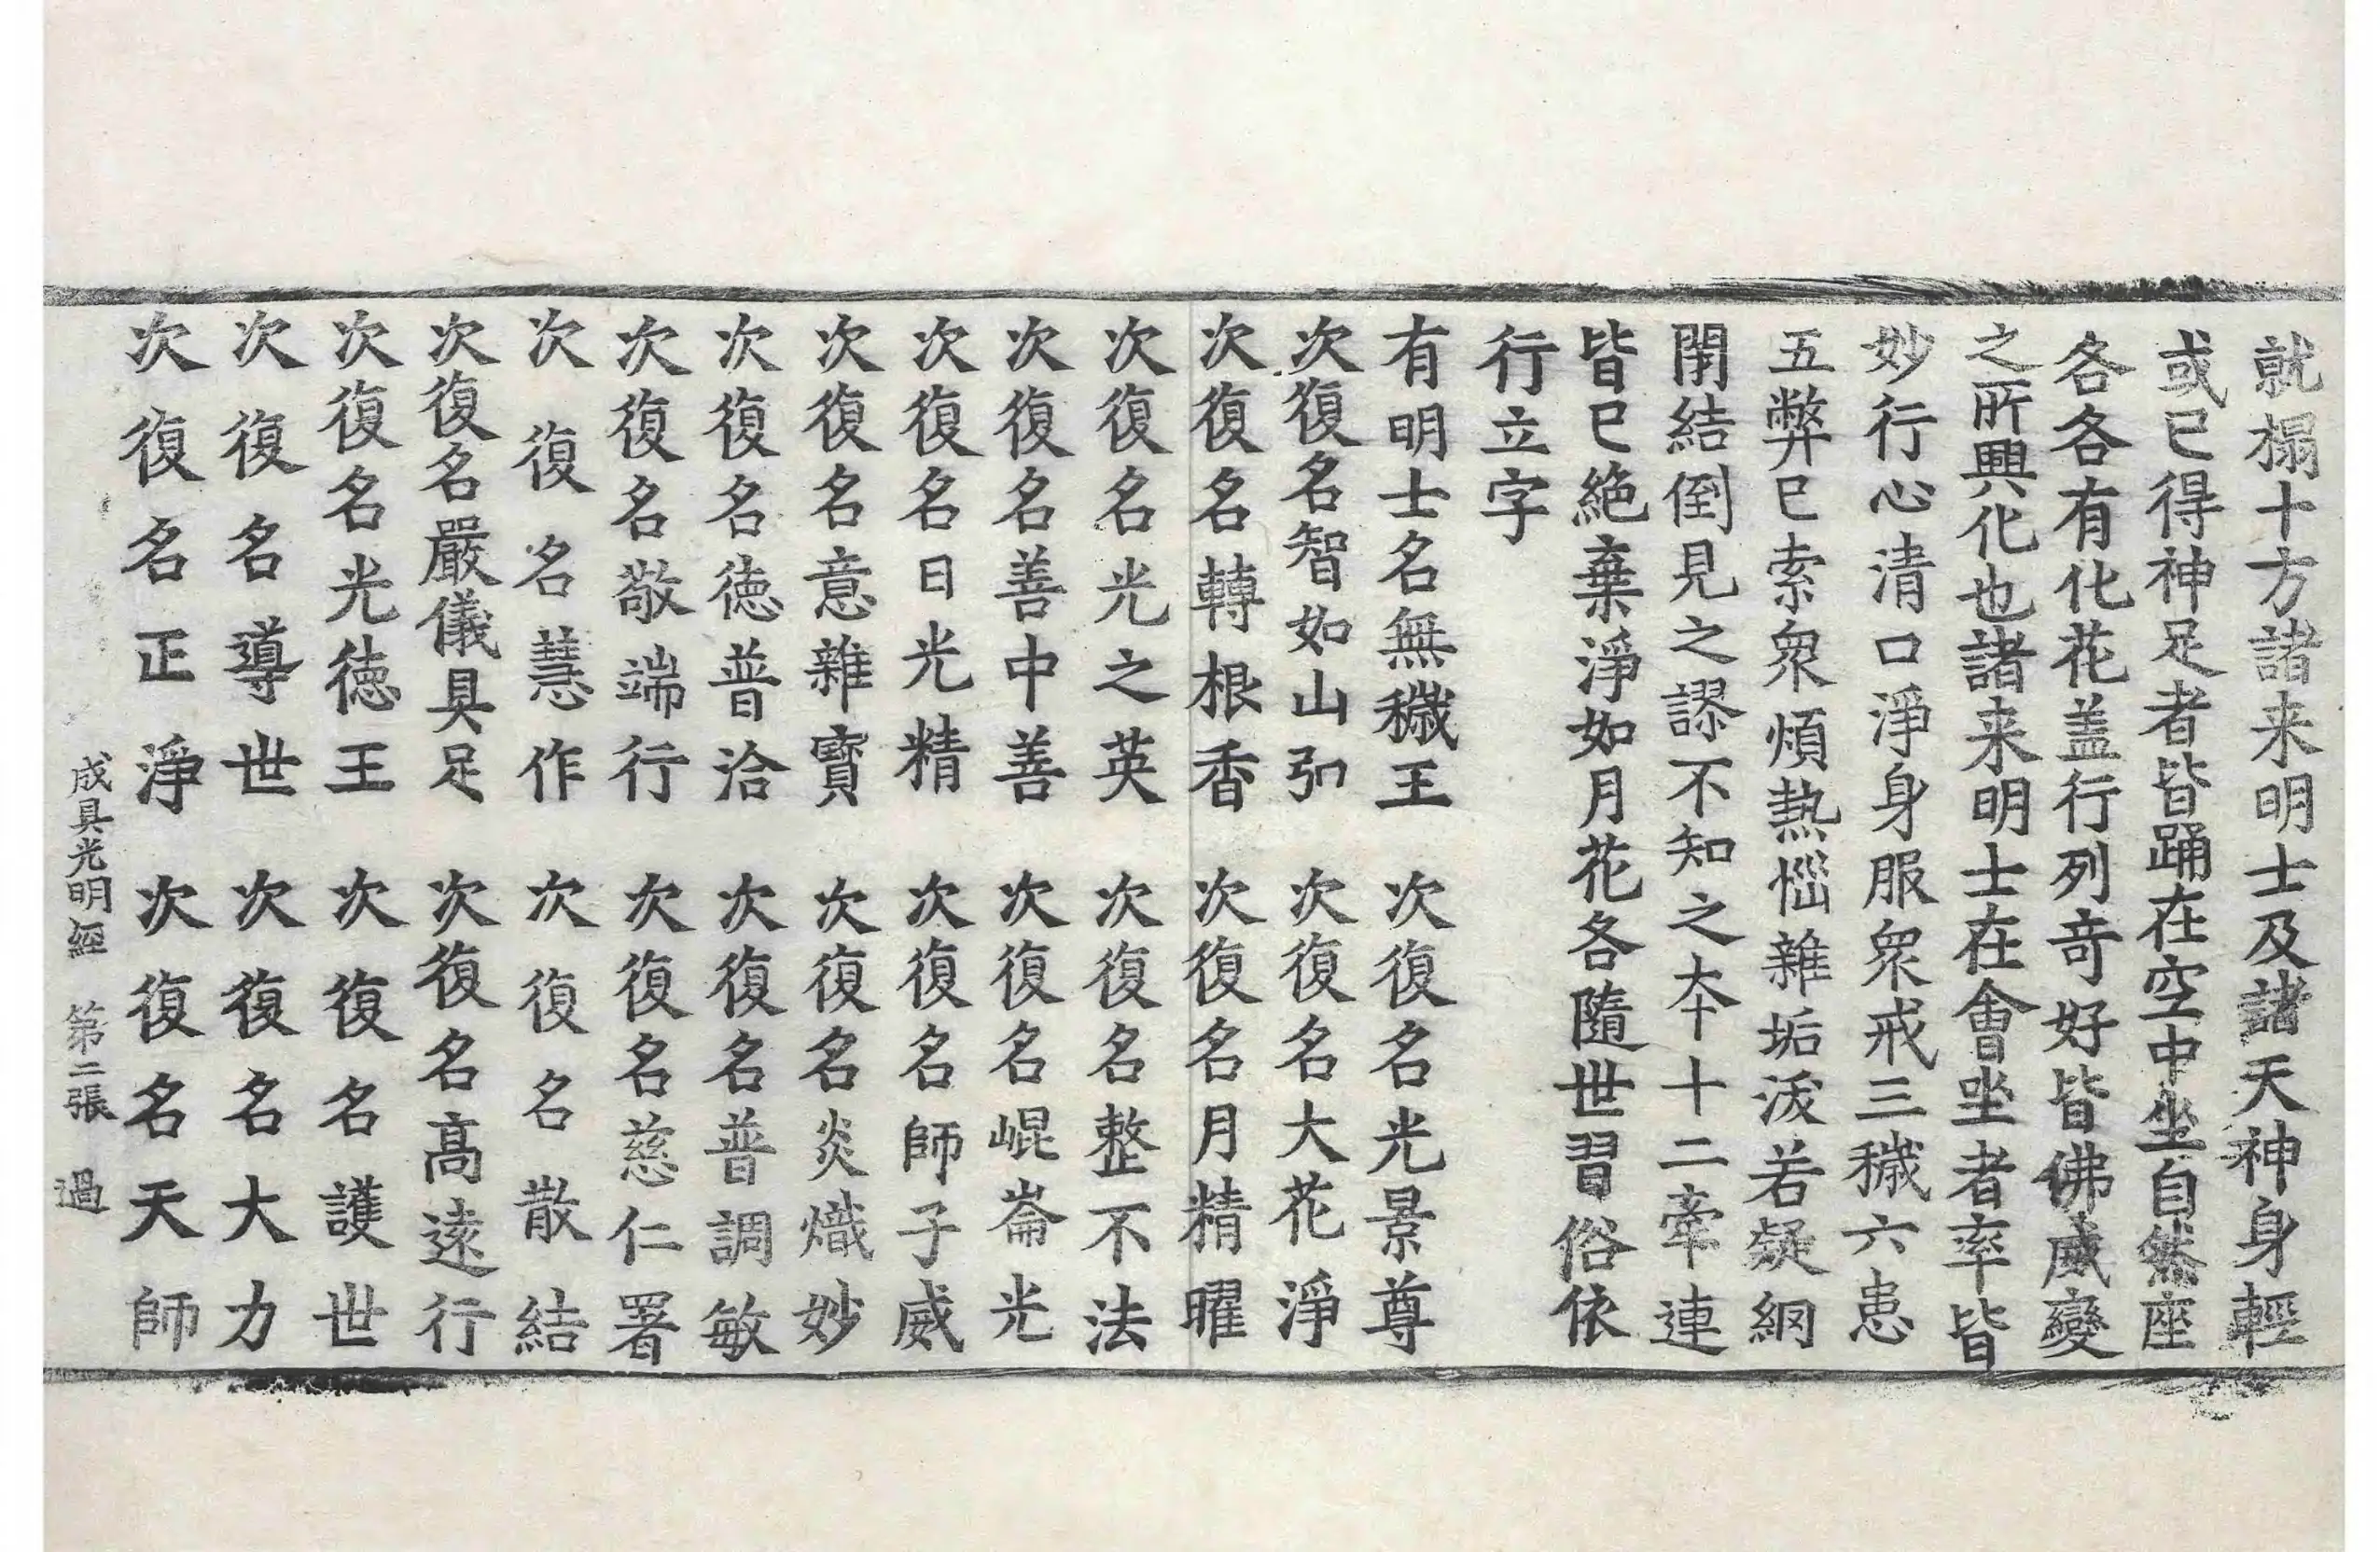 就搨十方諸来明士及諸天神身輕
或已得神足者皆踊在空中坐自然座
各各有化花盖行列竒好皆佛威變
之所興化也諸来明士在會坐者率皆
妙行心清口淨身服衆戒三穢六患
五弊已索衆煩熱惱雜垢冺若凝網
開結倒見之謬不知之本十二牽連
皆已絶棄淨如月花各隨世習俗依
行立字
有明士名無穢王　次復名光景尊
次復名智如山弘　次復名大花淨
次復名轉根香　次復名月精曜
次復名光之英　次復名整不法
次復名善中善　次復名崐崙光
次復名日光精　次復名師子威
次復名意雜寶　次復名炎熾妙
次復名徳普洽　次復名普調敏
次復名敬端行　次復名慈仁署
次復名慧作　次復名散結
次復名嚴儀具足　次復名髙逺行
次復名光徳王　次復名護世
次復名導世　次復名大力
次復名正淨　次復名天師
成具光明經　第二張　過